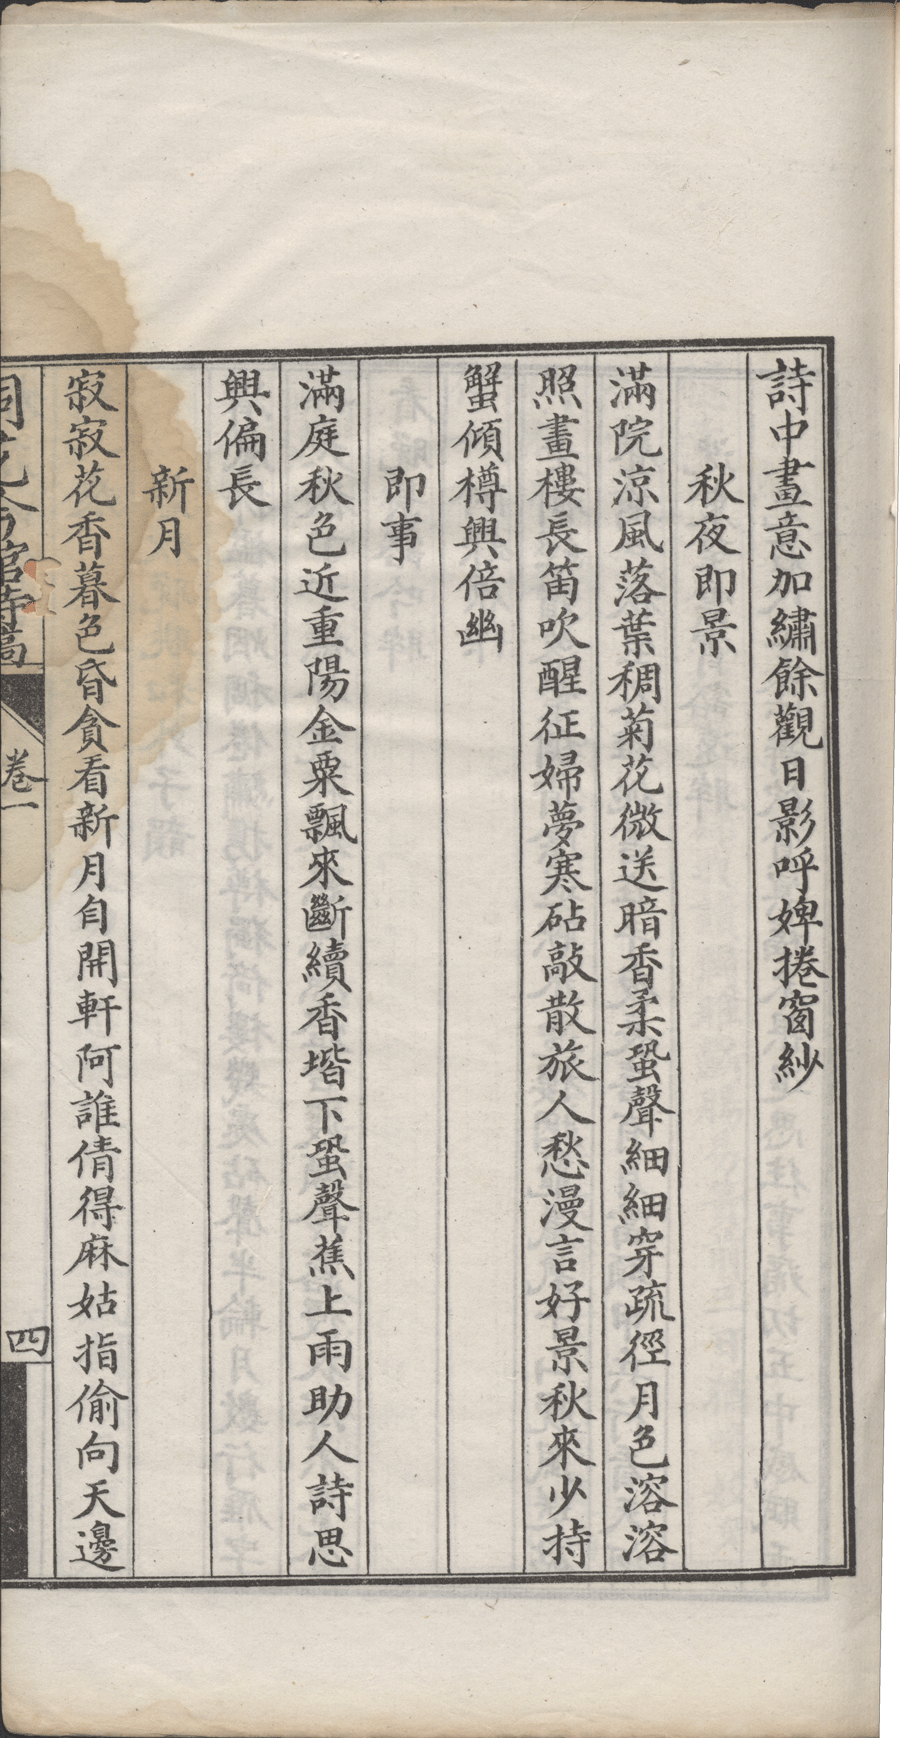 詩中畫意加繡餘觀日影呼婢捲窗紗
秋夜即景
滿院涼風落葉稠菊花微送暗香柔蛩聲細細穿疏徑月色溶溶
照畫樓長笛吹醒征婦夢寒砧敲散旅人愁漫言好景秋來少持
蟹傾樽興倍幽
即事
滿庭秋色近重陽金粟飄來斷續香堦下蛩聲蕉上雨助人詩思
興偏長
新月
寂寂花香暮色昏貪看新月自開軒阿誰倩得麻姑指偷向天邊
卷一
四